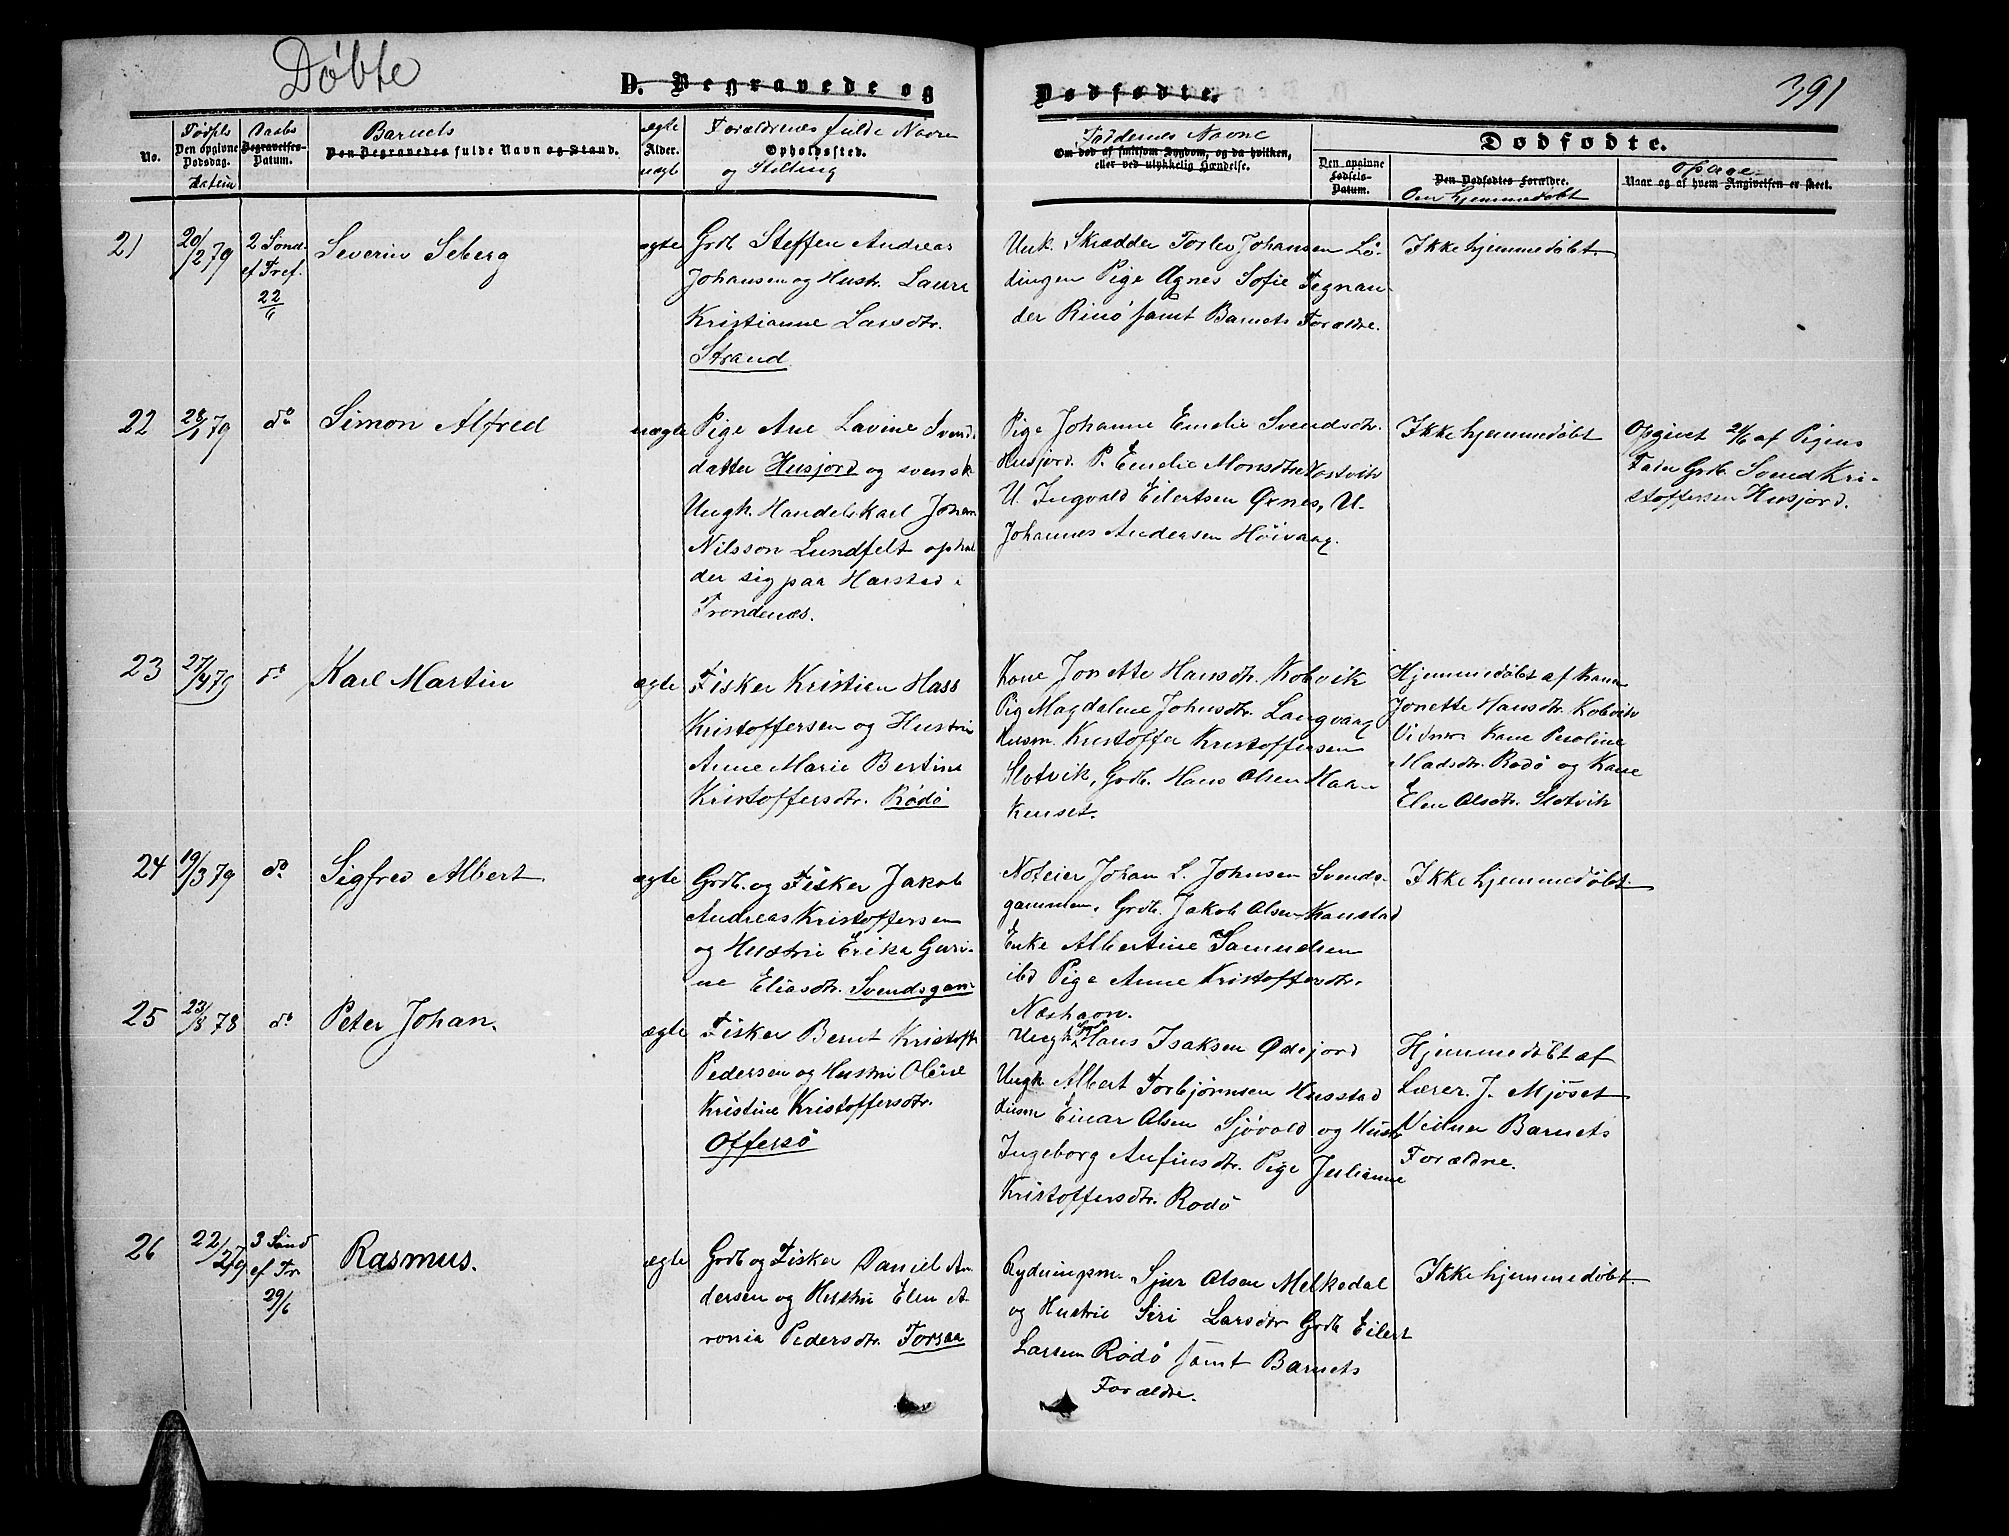 Døbte
D. Begravede og
Dødfødte.
391
No.
Fødsels
Den opgivne
Dødsdag.
Datum
Daabs
Begravelses-
Datum.
Barnets
Den Begravedes fulde Navn og Stand.
ægte
Alder.
uægte
Forældrenes fulde Navn
Opholdssted.
og Stilling
Faddernes Navne
Om død af smitsom Sygdom, og da hvilken,
eller ved ulykkelig Hændelse.
Dødfødte.
Den opgivne
Fødsels-
Datum.
Den Dødfødtes Forældre.
Om hjemmedøbt
Naar og af hvem Angivelsen er skeet.
21
20/2 79
2 Sønd
ef Tref.
22/6
Severin Seberg
ægte
Grdb. Steffen Andreas
Johansen og Hustr. Laura
Kristianne Larsdtr.
Strand
Unk. Skrædder Torlev Johansen Lø-
dingen Pige Agnes Sofie Tegnan-
der Rinø samt Barnets Forældre.
Ikke hjemmedøbt
22
28/1 79
do
Simon Alfred
uægte
Pige Ane Lavine Svends
datter Husjord og svensk
Ungk. Handelskarl Johan
Nilsson Lundfelt ophol
der sig paa Harstad i
Trondenæs.
Pige Johanne Emelie Svendsdtr.
Husjord. P. Emelie Monsdtr Nostvik
U. Ingvald Eilertsen Øxnes, U.
Johannes Andersen Høivaag.
Ikke hjemmedøbt
Opgivet 21/6 af Pigens
Fader Grdb. Svend Kri-
stoffersen Husjord.
23
27/4 79
do
Karl Martin
ægte
Fisker Kristian Hass
Kristoffersen og Hustru
Anne Marie Bertine
Kristoffersdtr. Rødø
Kone Jonette Hansdtr. Kobvik
Pig Magdalene Johnsdtr. Langvaag
Husm. Kristoffer Kristoffersen
Slotvik, Grdb. Hans Olsen Haa-
kenset.
Hjemmedøbt af Kone
Jonette Hansdtr. Kobvik
Vidner Kone Peroline
Madsdtr. Rødø og Kone
Elen Olsdtr. Slotvik
24
19/3 79
do
Sigfred Albert
ægte
Grdb. og Fisker Jakob
Andreas Kristoffersen
og Hustru Erika Guri-
ne Eliasdtr. Svendsgam
Noteier Johan L. Johnsen Svends-
gammen. Grdb. Jakob Olsen Kanstad
Enke Albertine Samuelsen
ibd Pige Anne Kristoffersdtr.
Næshavn.
Ikke hjemmedøbt
25
23/8 78
do
Peter Johan.
ægte
Fisker Bernt Kristoff
Pedersen og Hustru Oline
Kristine Kristoffersdtr.
Offersø
Ungk. Hans Isaksen Ødejord
Ungk. Albert Torbjørnsen Husstad
Husm Einar Olsen Sjøvold og Hustr
Ingeborg Anfinsdtr. Pige Julianne
Kristoffersdtr. Rødø
Hjemmedøbt af
Lærer. J. Mjøset
Veidner Barnets
Forældre.
26
22/2 79
3 Sønd
ef Tr
29/6
Rasmus.
ægte
Grdb og Fisker Daniel An
dersen og Hustru Elen A-
ronia Pedersdtr. Forsaa
Rydningsm. Sjur Olsen Melkedal
og Hustru Siri Larsdtr Grdb Eilert
Larsen Rødø samt Barnets
Forældre.
Ikke hjemmedøbt